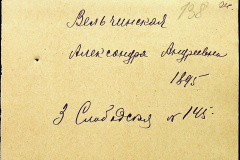 138
Вельчинская
Александра Андреевна
1895
3 Слободская № 145.